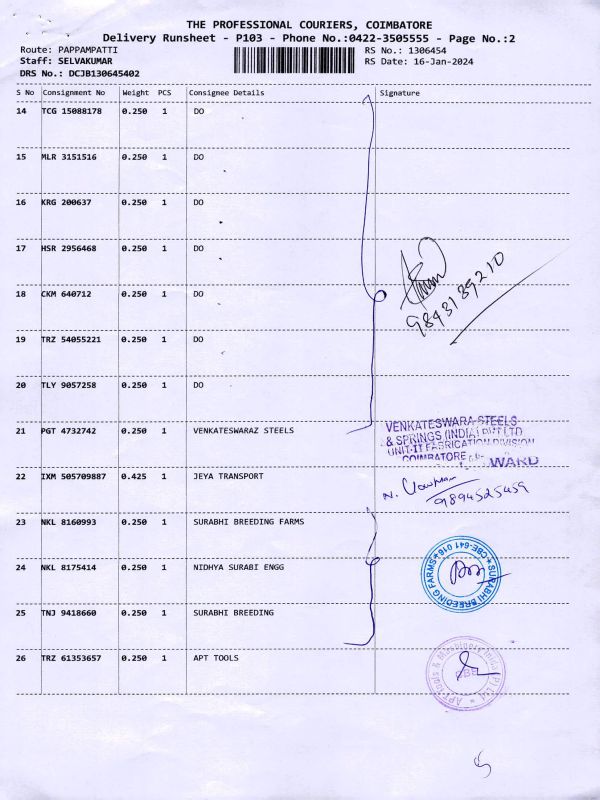 THE PROFESSIONAL COURIERS, COIMBATORE
Delivery Runsheet - P103 - Phone No.:0422-3505555 - Page No.:2
Route: PAPPAMPATTI RS No.: 1306454
Staff: SELVAKUMAR RS Date: 16-Jan-2024
DRS No.: DCJB130645402
S No Consignment No Weight PCS Consignee Details Signature
14 TCG 15088178 0.250 1 DO
15 MLR 3151516 0.250 1 DO
16 KRG 200637 0.250 1 DO
17 HSR 2956468 0.250 1 DO
9843189210
18 CKM 640712 0.250 1 DO
19 TRZ 54055221 0.250 1 DO
20 TLY 9057258 0.250 1 DO
21 PGT 4732742 0.250 1 VENKATESWARAZ STEELS
VENKATESWARA STEELS
& SPRINGS (INDIA) PVT LTD
UNIT-II FABRICATION DIVISION
COIMBATORE
INWARD
22 IXM 505709887 0.425 1 JEYA TRANSPORT
N.
9894525459
23 NKL 8160993 0.250 1 SURABHI BREEDING FARMS
24 NKL 8175414 0.250 1 NIDHYA SURABI ENGG
SURABHI BREEDING FARMS * CBE-641 016 *
25 TNJ 9418660 0.250 1 SURABHI BREEDING
26 TRZ 61353657 0.250 1 APT TOOLS
APT Tools & Machinery India (P) Ltd *
CBE